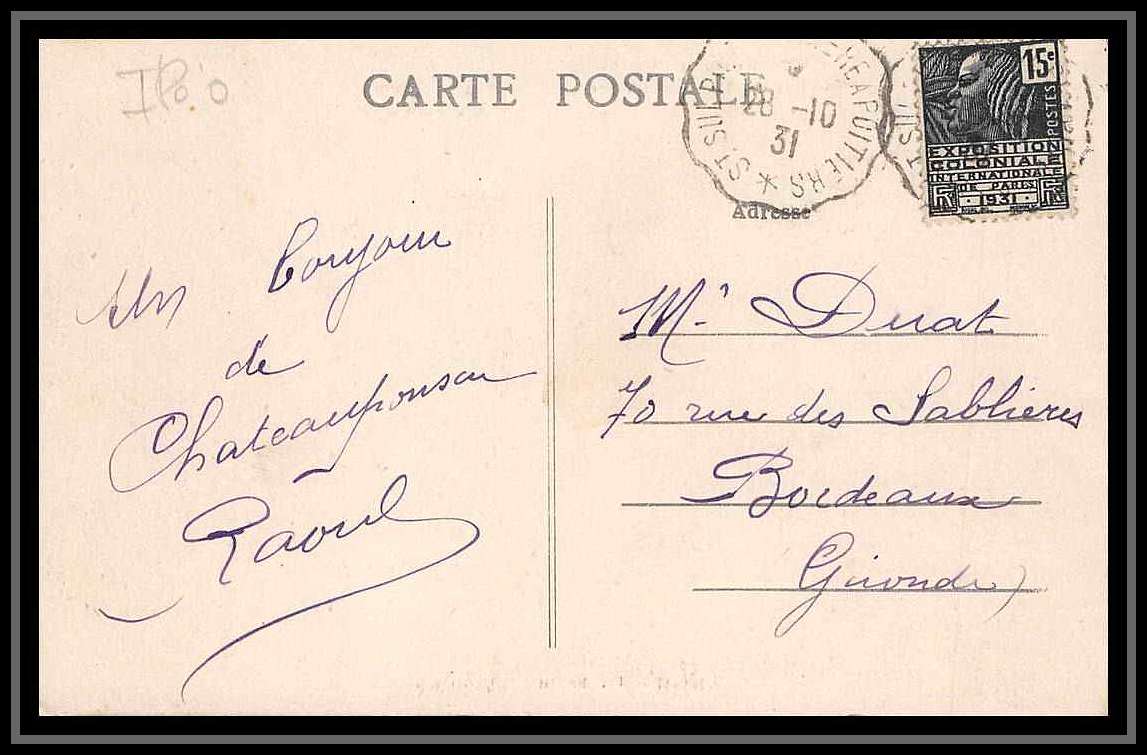 CARTE POSTALE
28 -10
31
POITIERS * ST SULP
15c
POSTES
EXPOSITION
COLONIALE
INTERNATIONALE
DE PARIS
1931
Adresse
Un bonjour
de
Chateauponsac
Raoul
Mr Duat
70 rue des Sablières
Bordeaux
Gironde)